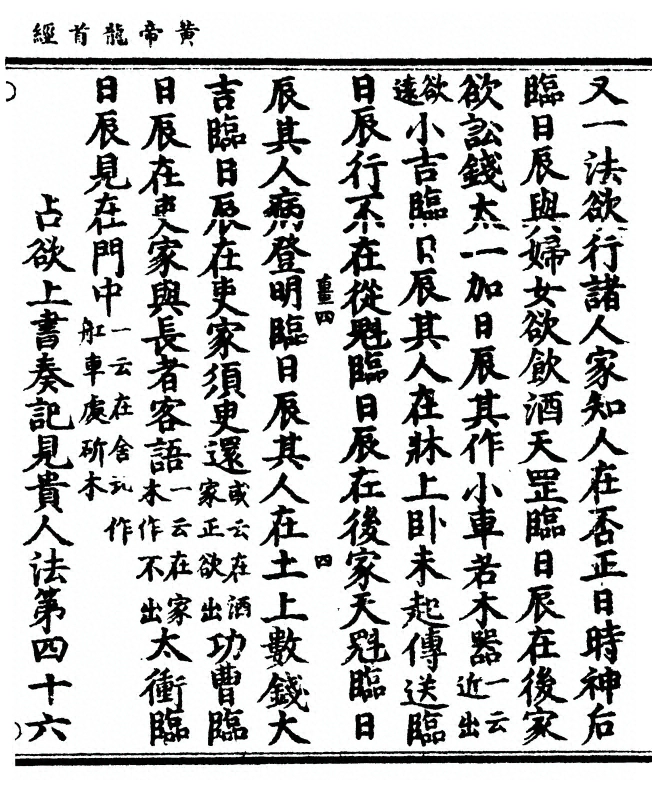 黃帝龍首經
又一法欲行諸人家知人在否正日時神后
臨日辰與婦女欲飲酒天罡臨日辰在後家
欲訟錢太一加日辰其作小車若木器一云近出
欲遠小吉臨日辰其人在牀上臥未起傳送臨
日辰行不在從魁臨日辰在後家天魁臨日
薑四
四
辰其人病登明臨日辰其人在土上數錢大
吉臨日辰在吏家須吏還或云在酒家正欲出功曹臨
日辰在吏家與長者客語一云在家木作不出太衝臨
日辰見在門中一云在舍乿作舡車處斫木
占欲上書奏記見貴人法第四十六